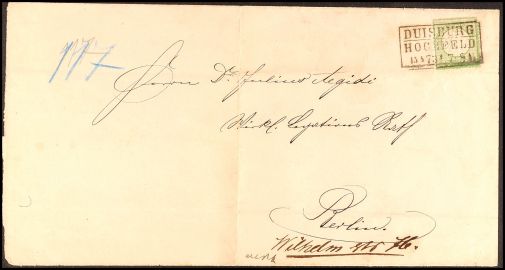 DUISBURG
HOCHFELD
Herrn Dr. Julius Aegidi
Wirkl. Legations Rath
Berlin.
Wilhelm str.